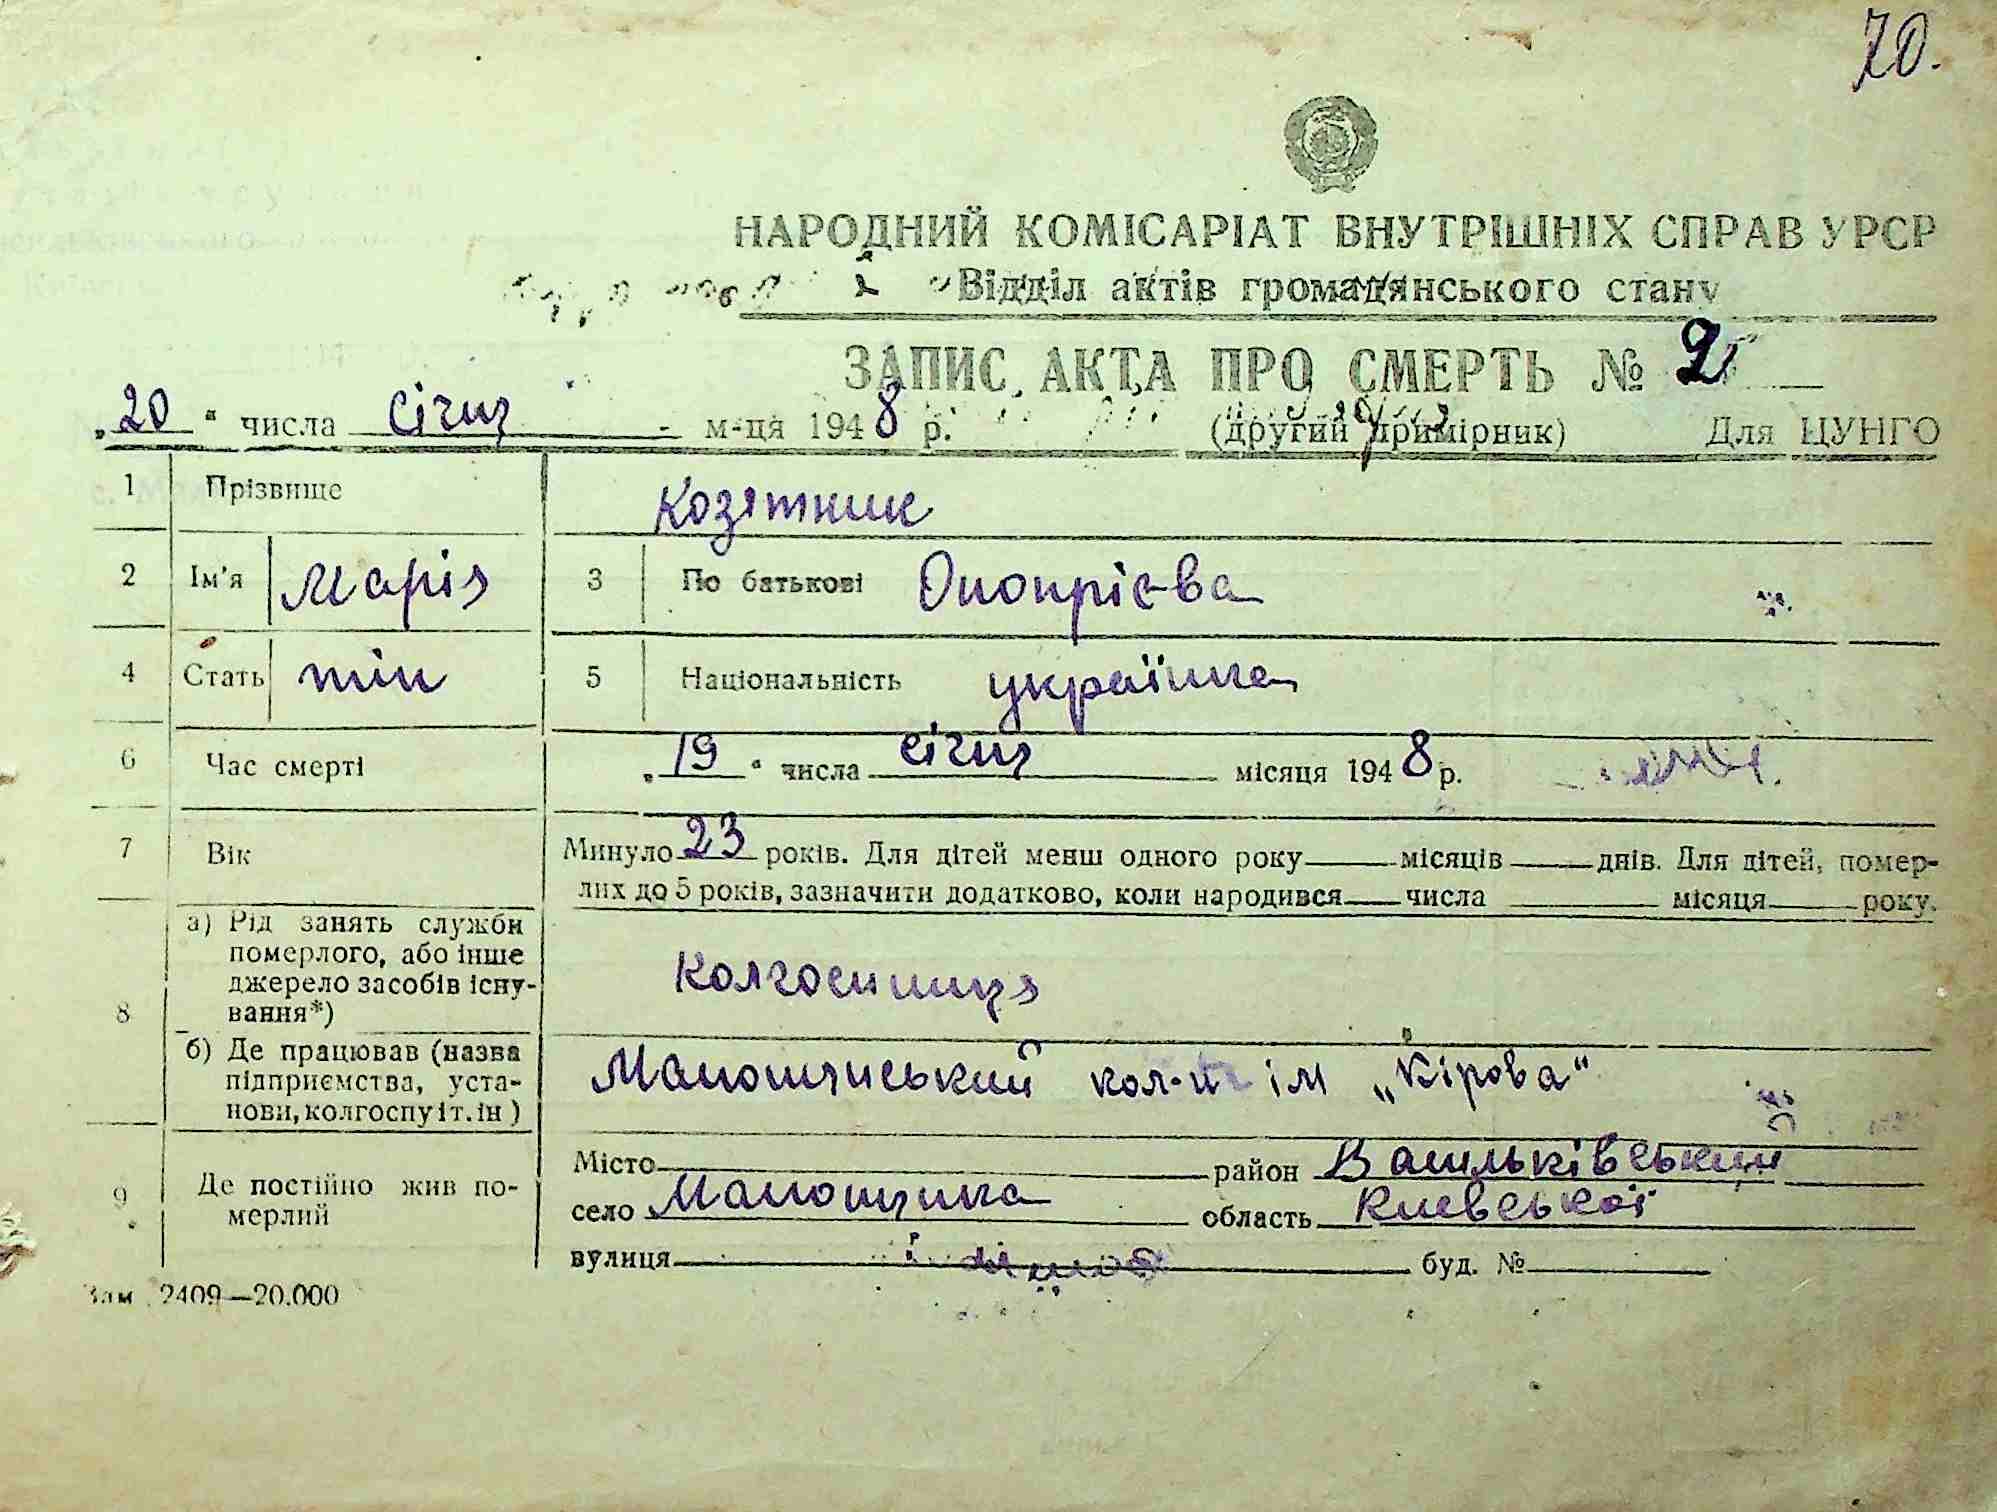 70.
НАРОДНИЙ КОМІСАРІАТ ВНУТРІШНІХ СПРАВ УРСР
Відділ актів громадянського стану
ЗАПИС АКТА ПРО СМЕРТЬ № 2
„20“ числа січня м-ця 1948 р. (другий примірник) Для ЦУНГО
1 Прізвище Козятник
2 Ім'я Марія 3 По батькові Онопрієва
4 Стать жін 5 Національність українка
6 Час смерті „19“ числа січня місяця 1948 р.
7 Вік Минуло 23 років. Для дітей менш одного року місяців днів. Для дітей, помер-
лих до 5 років, зазначити додатково, коли народився числа місяця року.
8 а) Рід занять служби
померлого, або інше
джерело засобів існу-
вання*)
Колгоспниця
б) Де працював (назва
підприємства, уста-
нови, колгоспу і т. ін)
кол-п ім „Кірова“
9 Де постійно жив по-
мерлий
Місто район Васильківський
село область Київської
вулиця буд. №
Зам 2409—20.000